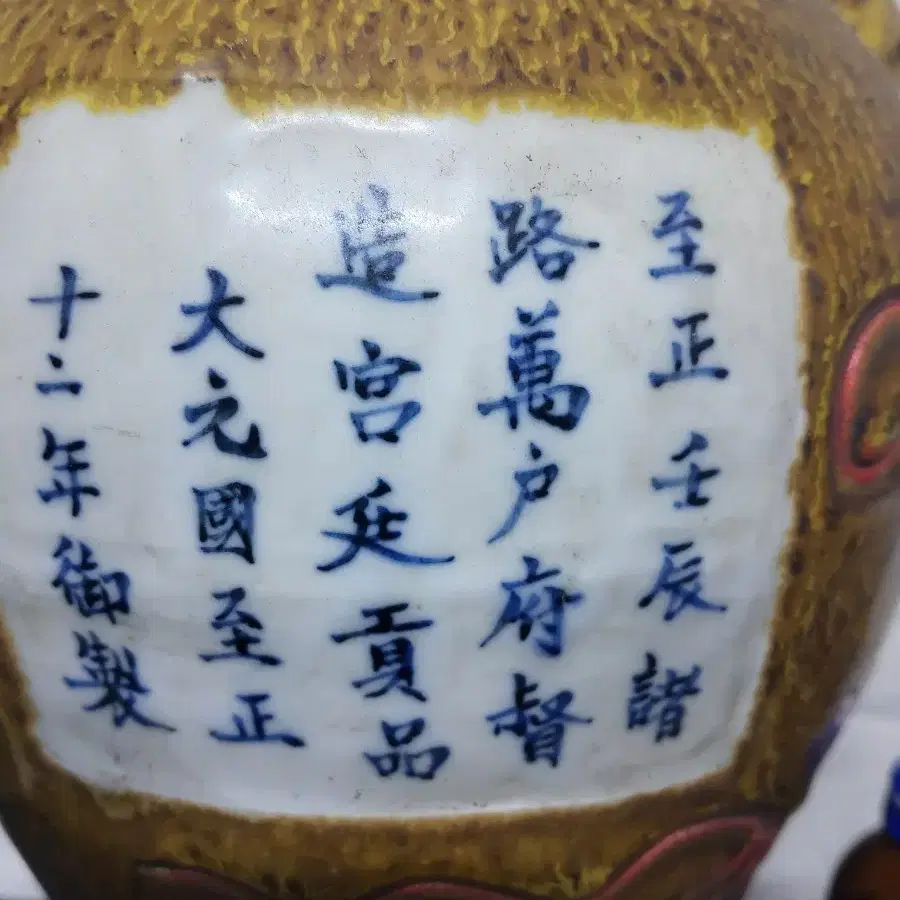 至正壬辰諸
路萬户府督
造宮廷貢品
大元國至正
十二年御製